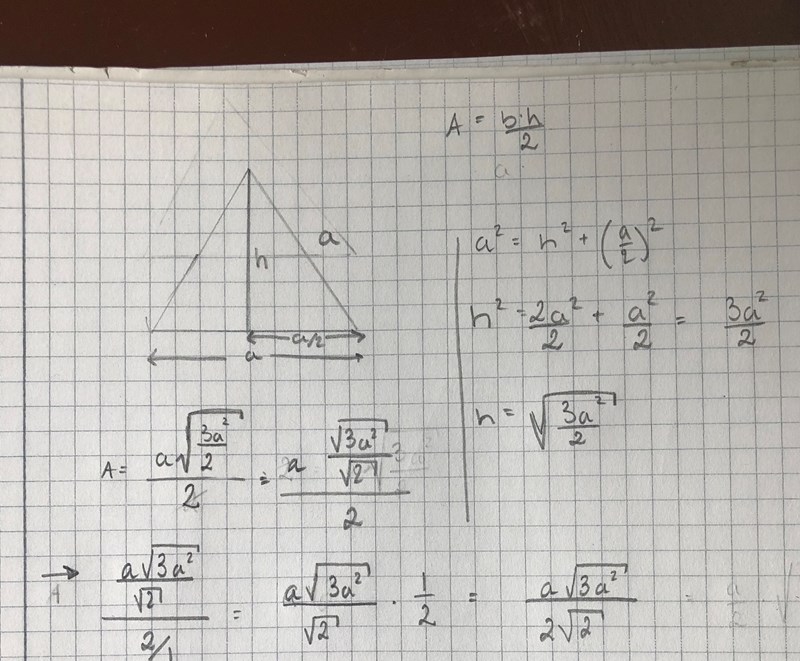 A = b·h/2
a
h
a/2
a
a² = h² + (a/2)²
h² = 2a²/2 + a²/2 = 3a²/2
h = √(3a²/2)
A = a√(3a²/2)/2 = a (√3a²/√2)/2
→ (a√3a²/√2)/(2/1) = a√3a²/√2 · 1/2 = a√3a²/2√2